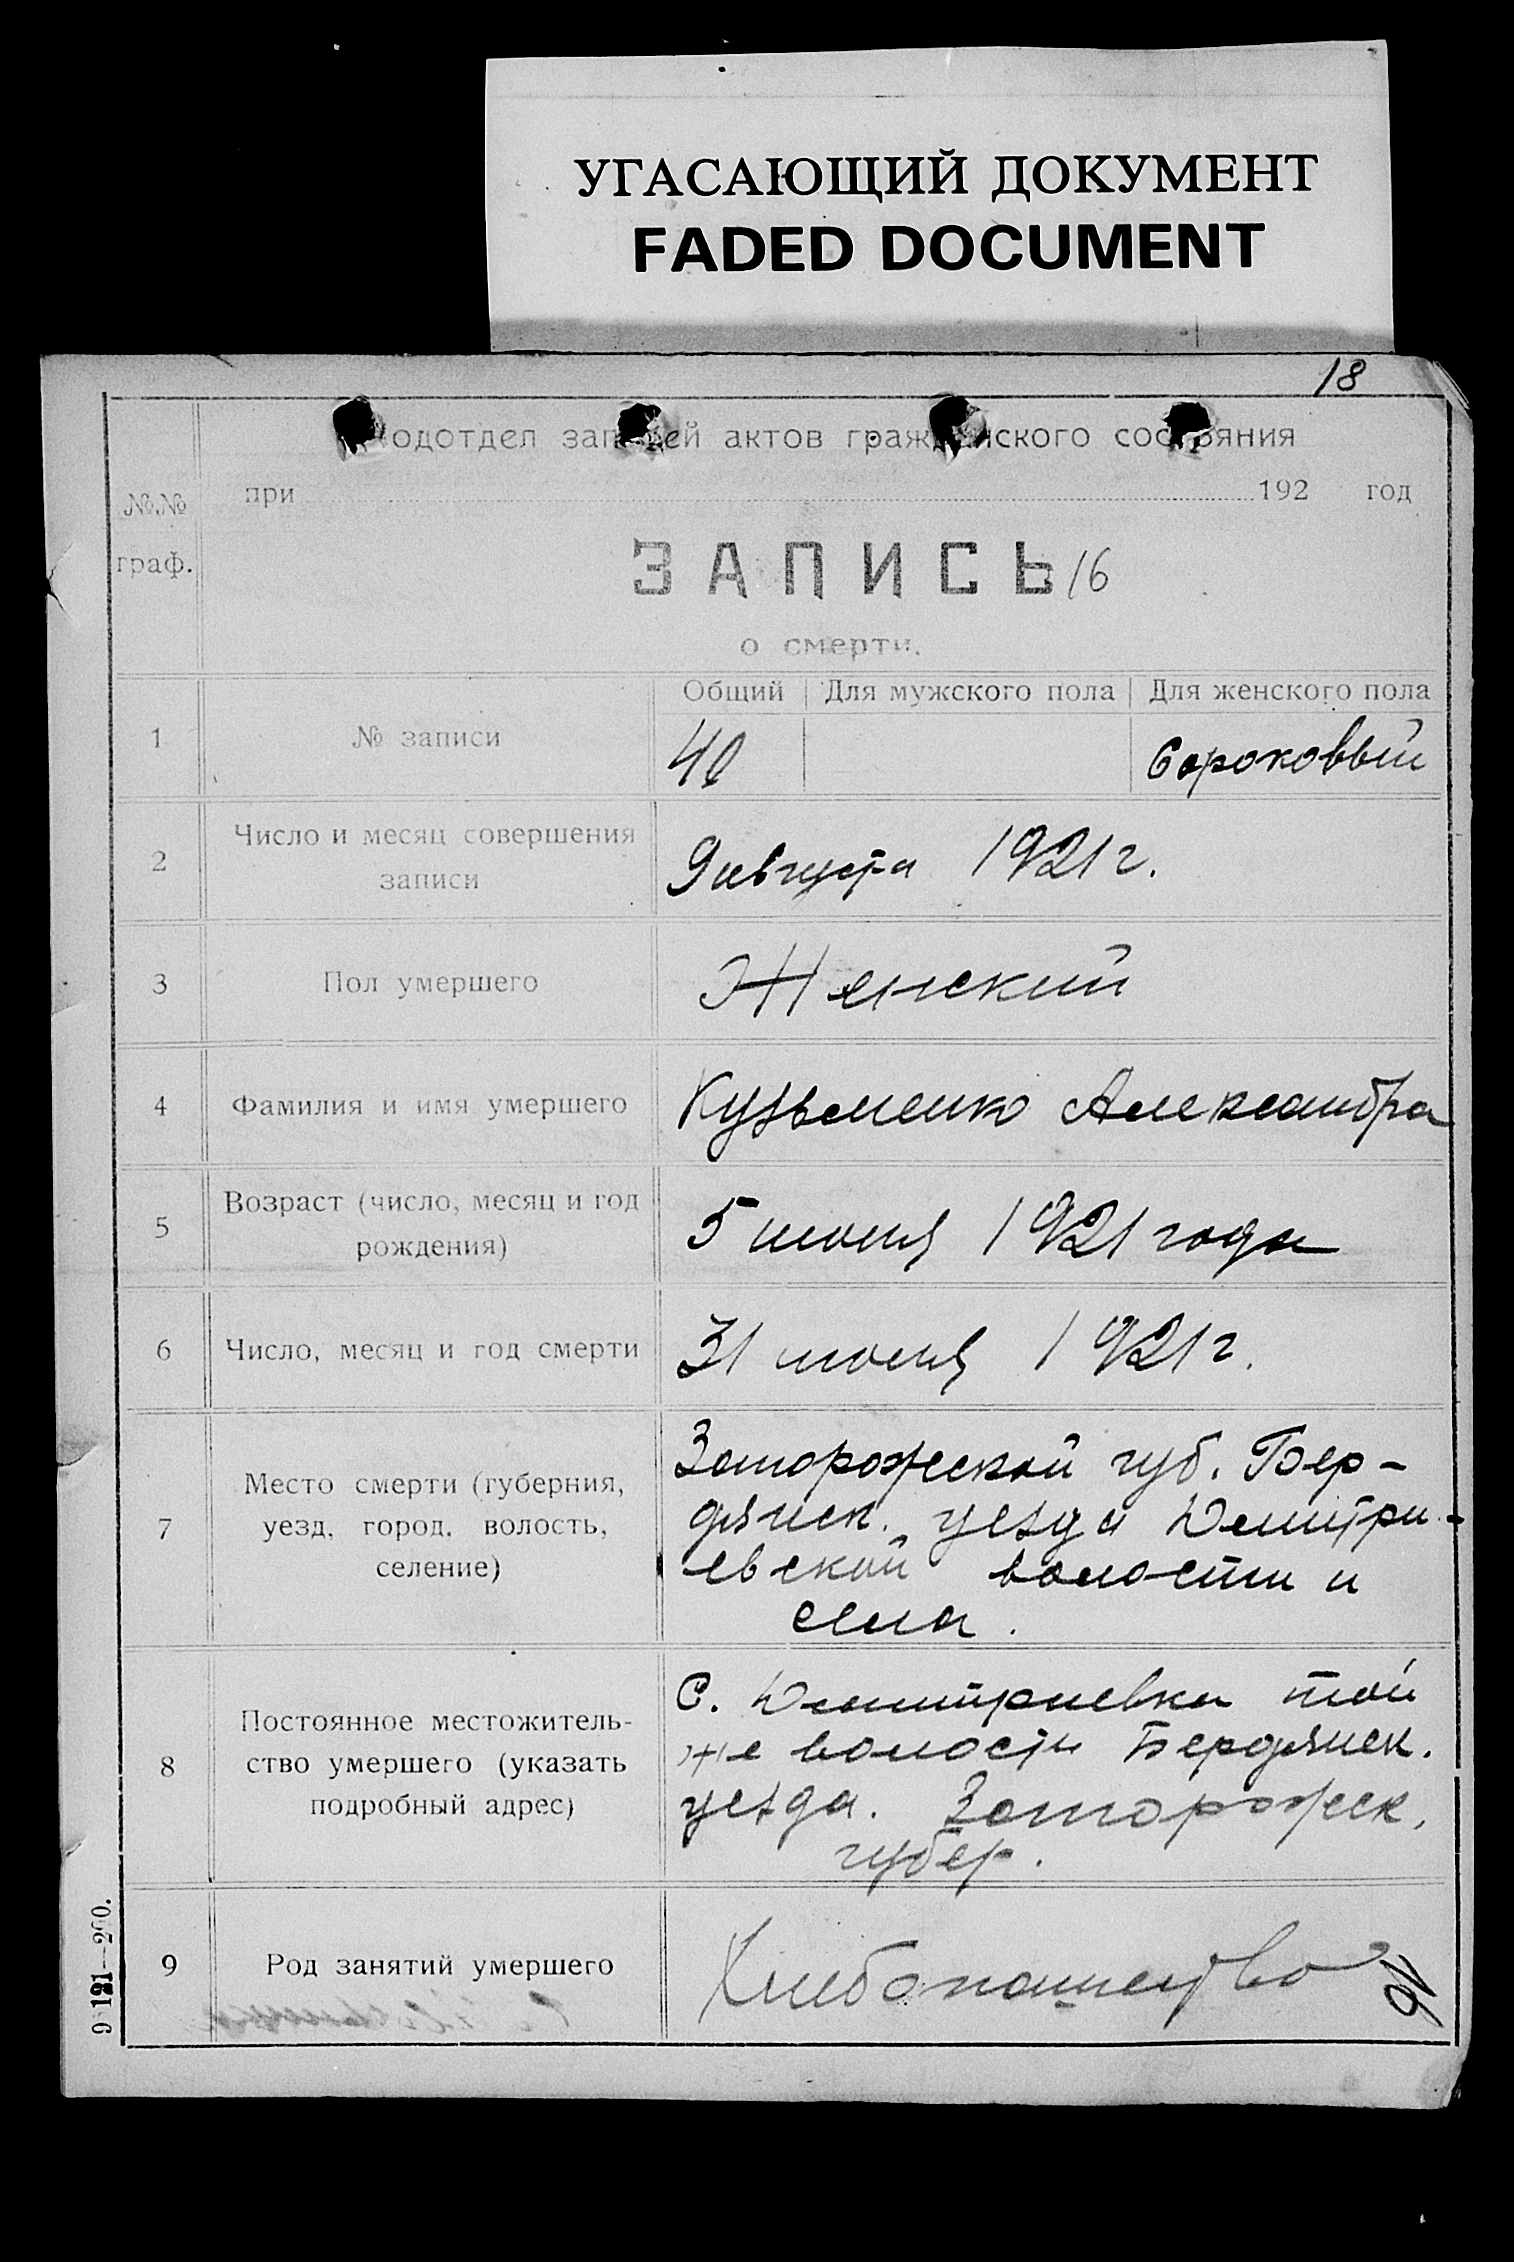 УГАСАЮЩИЙ ДОКУМЕНТ
FADED DOCUMENT
18
Подотдел записей актов гражданского состояния
№.№ граф.
при 192 год
ЗАПИСЬ 16
о смерти.
Общий Для мужского пола Для женского пола
1 № записи 40 Сороковый
2 Число и месяц совершения
записи
9 августа 1921 г.
3 Пол умершего Женский
4 Фамилия и имя умершего Кузьменко Александра
5 Возраст (число, месяц и год
рождения)
5 июня 1921 года
6 Число, месяц и год смерти 31 июля 1921 г.
7 Место смерти (губерния,
уезд, город, волость,
селение)
Запорожской губ. Бер-
дянск. уезда Дмитри-
евской волости и
села.
8 Постоянное местожитель-
ство умершего (указать
подробный адрес)
С. Дмитриевка той
же волости Бердянск.
уезда. Запорожск.
губер.
9 Род занятий умершего Хлебопашество